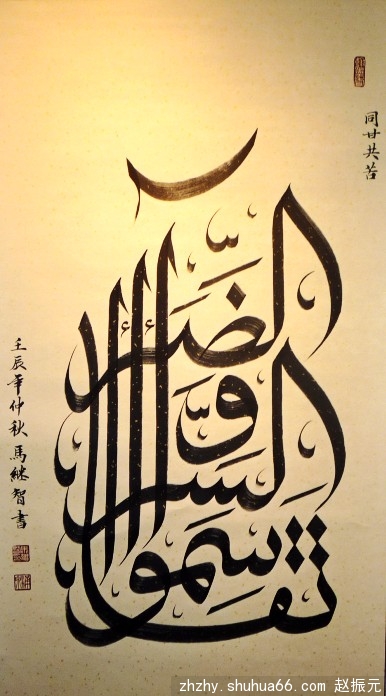 同甘共苦
تقاسموا
السراء
والضراء
壬辰年仲秋馬继智書
zhzhy.shuhua66.com 赵振元